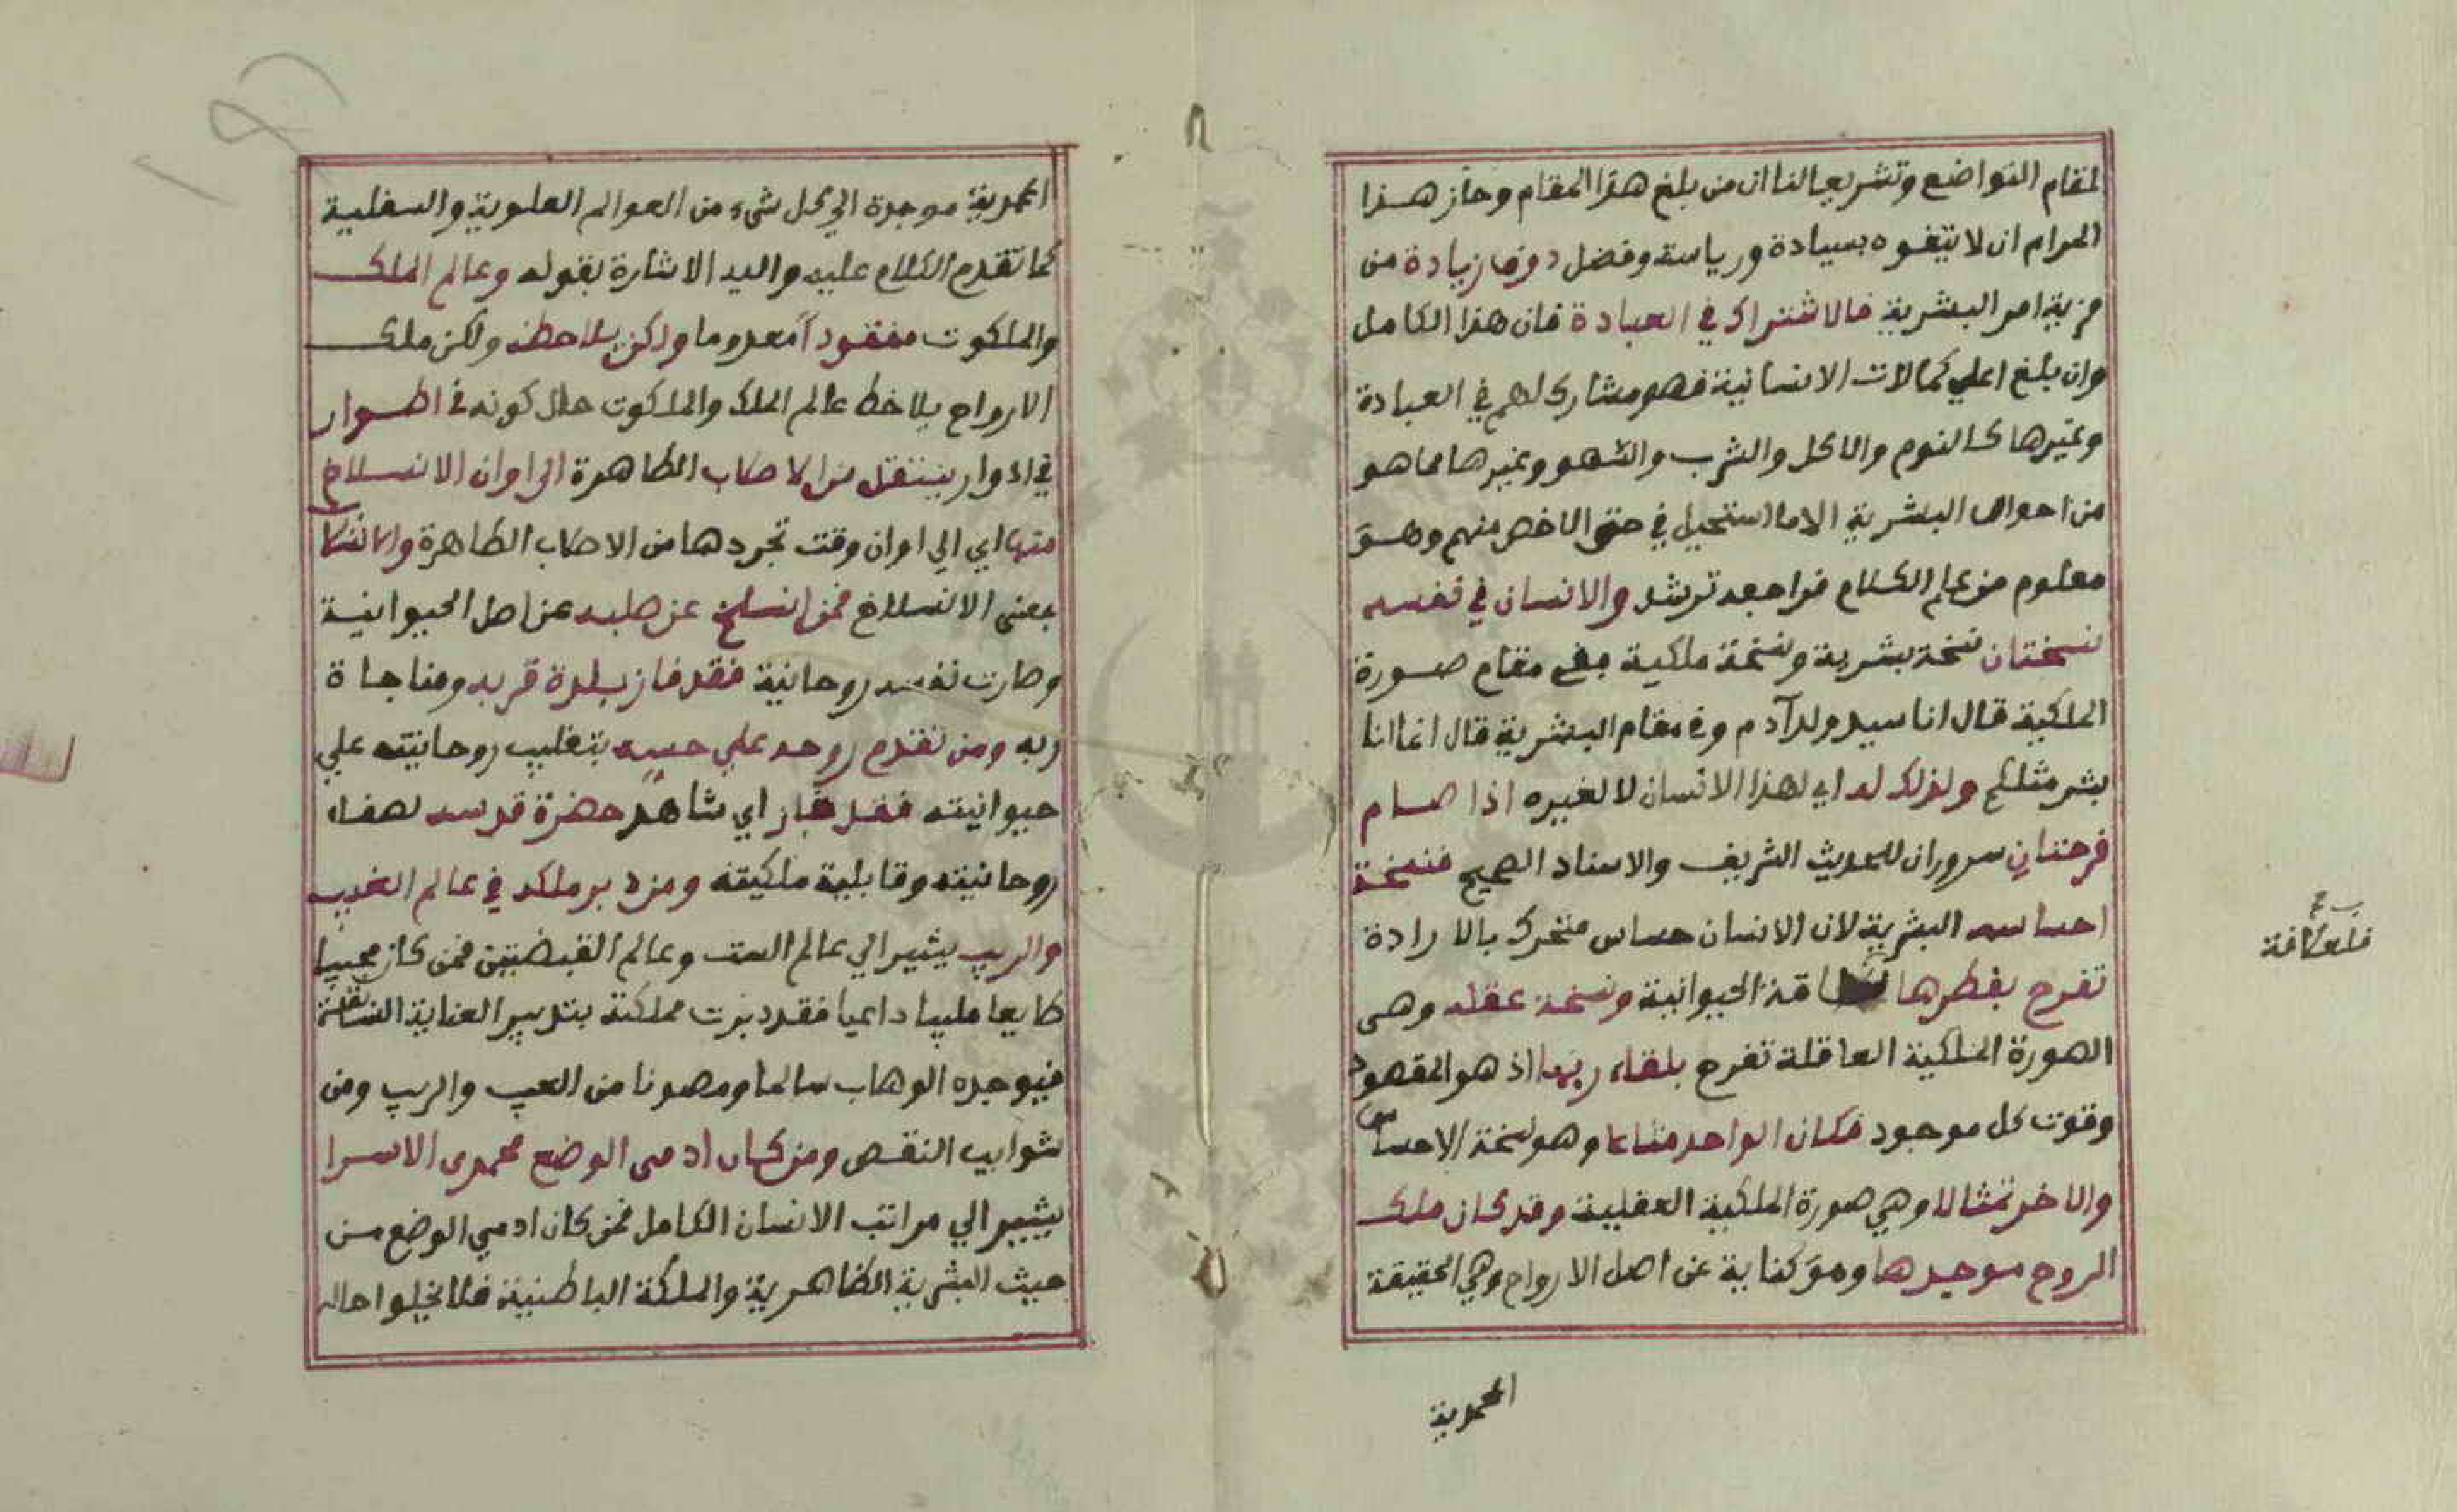 لمقام التواضع وتشريعا لنا ان من بلغ هذا المقام وحاز هذا
المرام ان لا يتفوه بسيادة ورياسة وفضل دوفا زيادة من
مزية امر البشرية فالاشتراك في العبادة فان هذا الكامل
وان بلغ اعلي كمالات الانسانية فهو مشارك لهم في العبادة
وغيرها كالنوم والاكل والشرب والسهو وغيرها مما هو
من احوال البشرية الا ما استحيل في حق الاخص منهم وهو
معلوم من علم الكلام فراجعه ترشد والانسان في نفسه
نسختان نسخة بشرية ونسخة ملكية ففي مقام صورة
الملكية قال انا سيد ولد آدم وفي مقام البشرية قال انما انا
بشر مثلكم ولذلك له اي لهذا الانسان لا لغيره اذا صام
فرحتان سروران للحديث الشريف والاسناد الصحيح فنسخة
احساسه البشرية لان الانسان حساس متحرك بالارادة
تفرح بفطرها الحيوانية ونسخة عقله وهي
الصورة الملكية العاقلة تفرح بلقاء ربها اذ هو المقصود
وقوت كل موجود فكان الواحد متاعا وهو نسخة الاحساس
والاخر تمثالا وهي صورة الملكية العقلية وقد كان ملك
الروح موجدها وهو كناية عن اصل الارواح وهي الحقيقة
المحمدية
فلعلاقة
المحمدية موجدة الي كل شيء من العوالم العلوية والسفلية
كما تقدم الكلام عليه واليه الاشارة بقوله وعالم الملك
والملكوت مفقودا معدوما ولكن يلاحظ ولكن ملك
الارواح يلاحظ عالم الملك والملكوت حال كونه في اطوار
في ادوار ينتقل من الاصلاب الطاهرة الي اوان الانسلاخ
منها اي الي اوان وقت تجردها من الاصلاب الطاهرة
بمعني الانسلاخ فمن انسلخ عن صلبه عن اصل الحيوانية
وصارت نفسه روحانية فقد فاز بلذة قربه ومناجاة
ربه ومن تقدم روحه علي حسه بتغليب روحانيته علي
حيوانيته فقد فاز اي شاهد حضرة قدسه لصفاء
روحانيته وقابلية ملكيته ومن دبر ملكه في عالم الغيب
والريب يشير الي عالم الست وعالم القبضتين فمن كان مجيبا
طايعا ملبيا داعيا فقد دبرت مملكته بتدبير العناية السابقة
فيوجده الوهاب سالما ومصونا من العيب والريب ومن
شوايب النقص ومن كان ادمي الوضع محمدي الاسرا
يشير الي مراتب الانسان الكامل فمن كان ادمي الوضع من
حيث البشرية الظاهرية والملكة الباطنية فلا يخلوا حاله